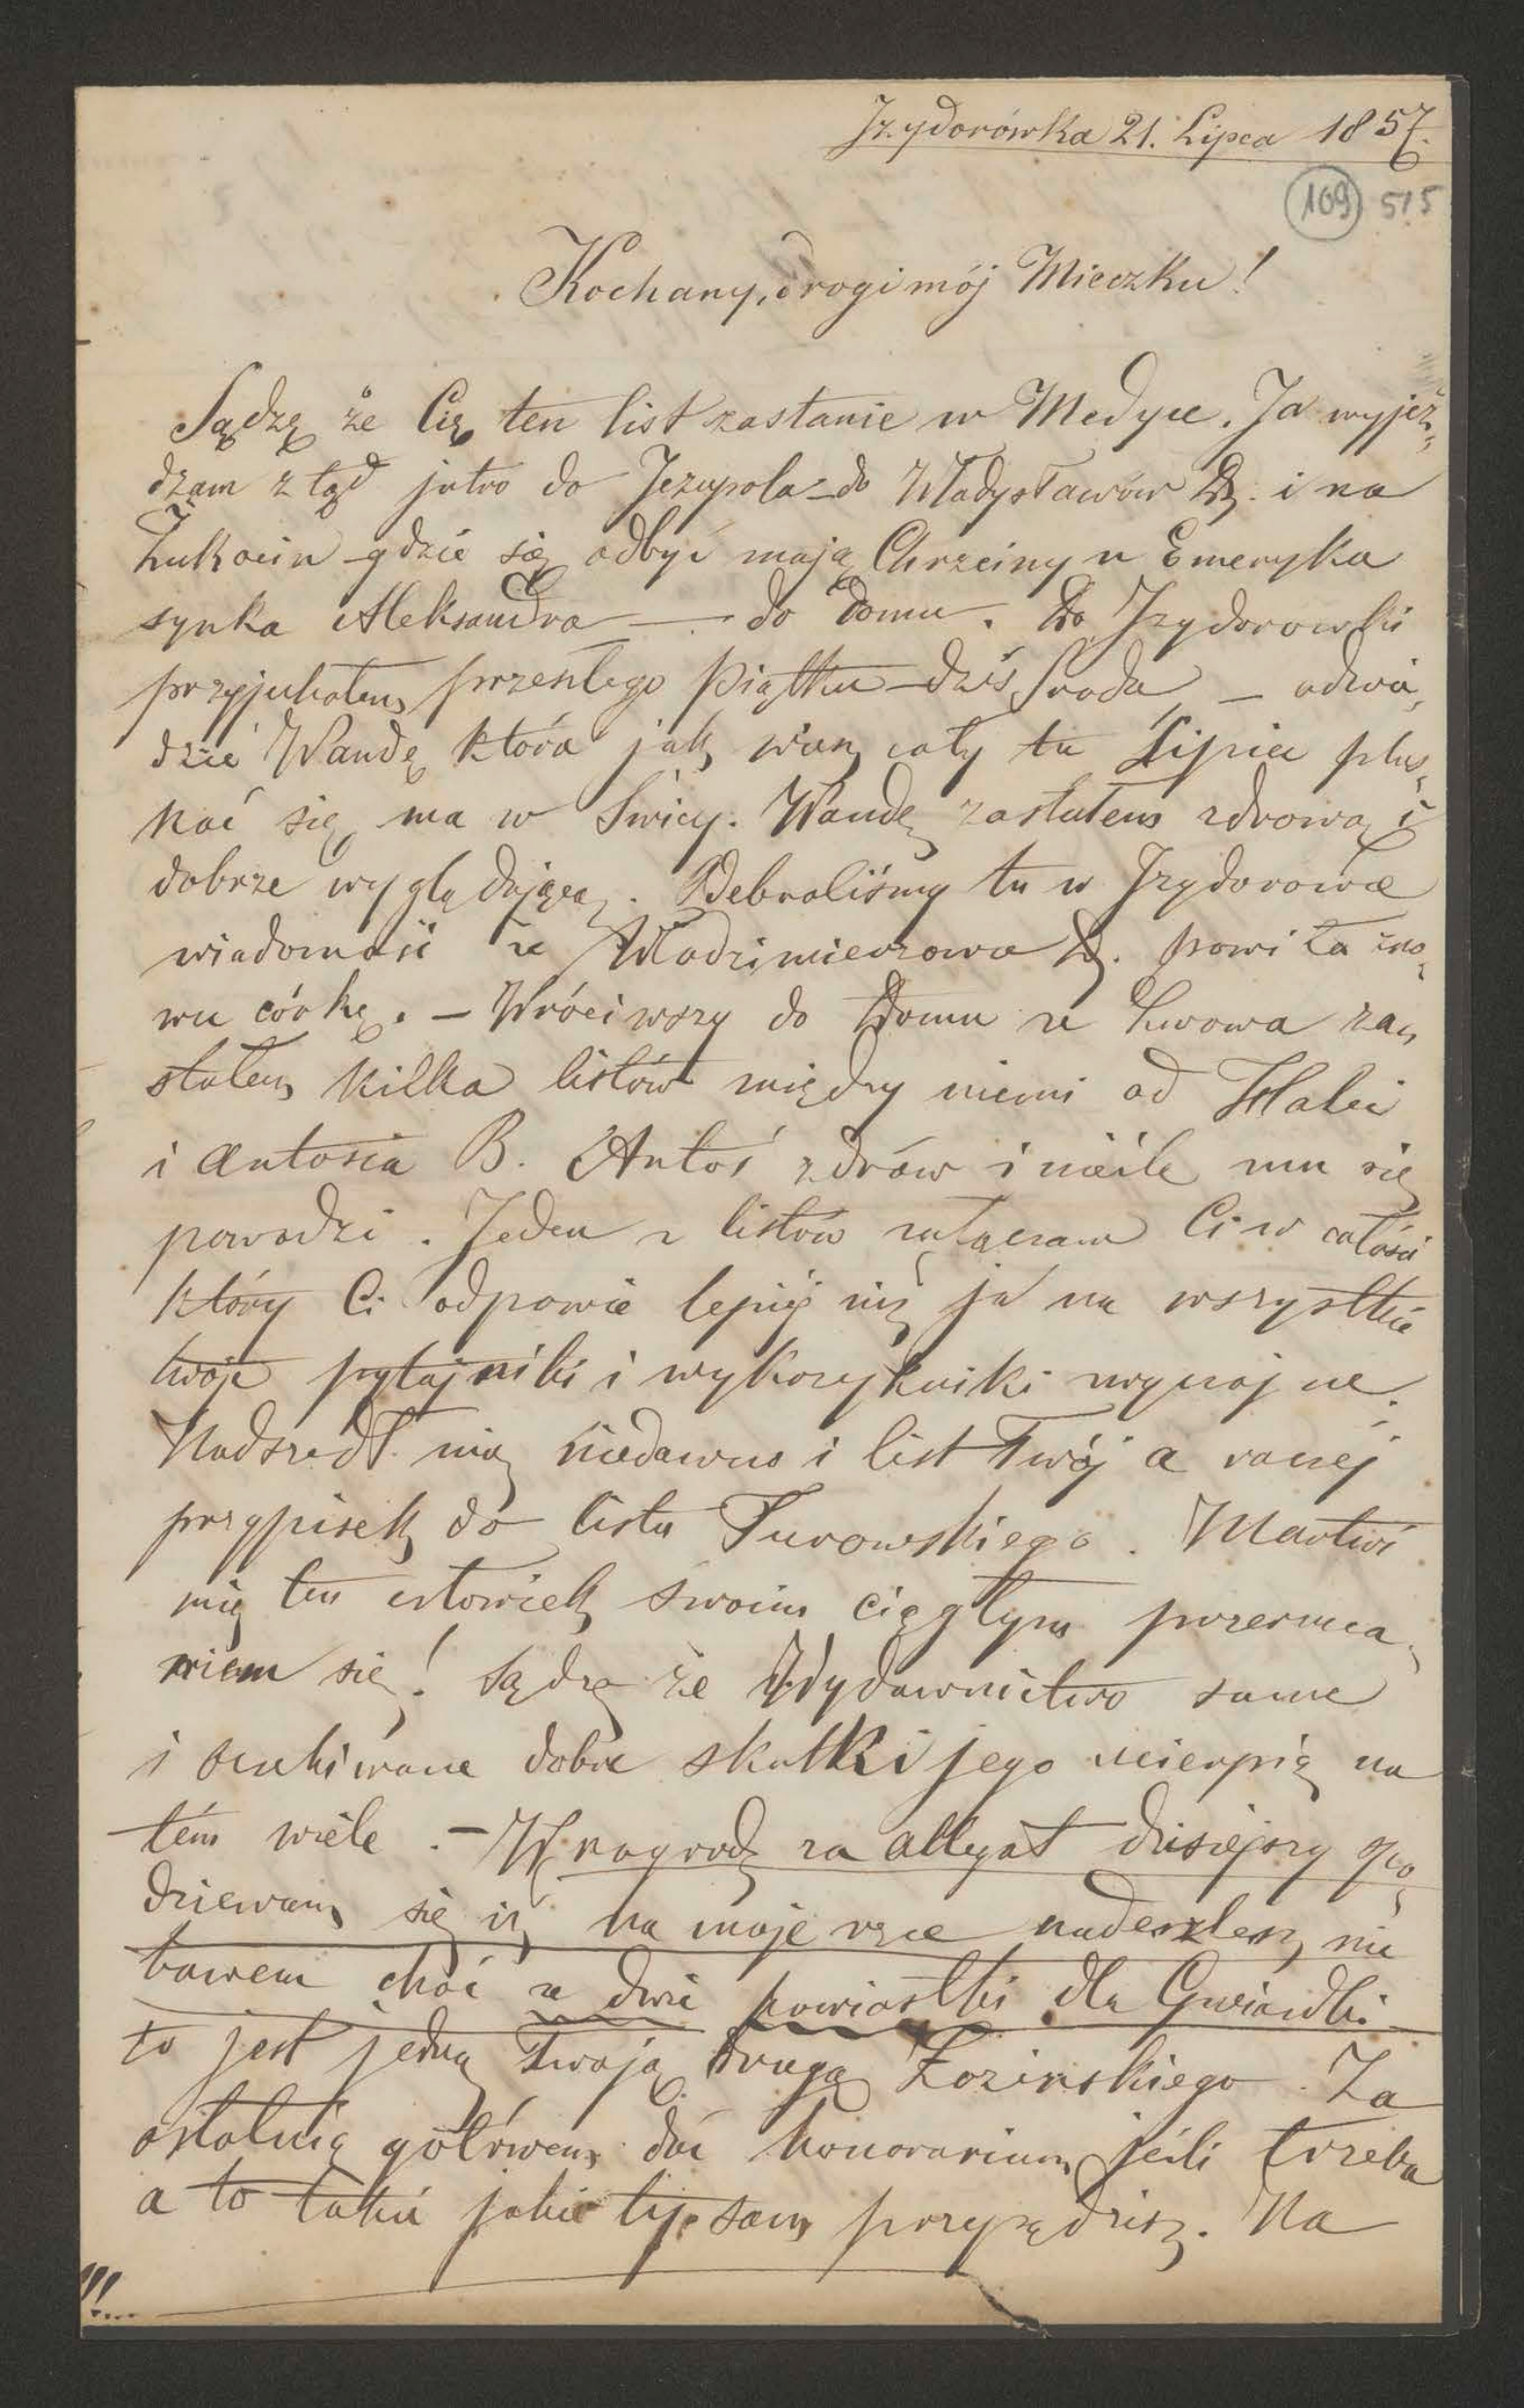 Izydorówka 21. Lipca 1857.
109 515
Kochany, drogi mój Mieczku!
Sądzę że Cię ten list zastanie w Medyce. Ja wyjeż„
dzam z tąd jutro do Jezupola – do Władysławów Dz. i na
Żukocin – gdzie się odbyć mają Chrzciny u Emeryka
synka Aleksandra — do domu. Do Izydorówki
przyjechałem przeszłego Piątku – dziś Środa – odwie„
dzić Wandę która jak wiesz cały tu Lipiec plus„
kać się ma w Świcy. Wandę zastałem zdrową i
dobrze wyglądającą. Odebraliśmy tu w Izydorówce
wiadomość że Włodzimierzowa Dz. powiła zno„
wu córkę. – Wróciwszy do Domu ze Lwowa za„
stałem kilka listów między niemi od Halci
i Antosia B. Antoś zdrów i nieźle mu się
powodzi. Jeden z listów załączam Ci w całości
który Ci odpowie lepiéj niż ja na wszystkie
twoje pytajniki i wykrzykniki
Nadszedł mię niedawno i list Twój a raczéj
przypisek do listu Turowskiego. Martwi
mię ten człowiek swoim ciągłym przerzuca„
niem się! Sądzę że Wydawnictwo same
i oczekiwane dobre skutki jego ucierpią na
tém wiele. – W nagrodę za allegat dzisiejszy spo„
dziewam się iż na moje ręce nadeszlesz nie
bawem choć ze dwie powiastki dla Gwiazdki
to jest jedną Twoją drugą Łozińskiego. Za
ostatnią gotówem dać honorarium jeśli trzeba
a to takie jakie ty sam przysądzisz. Na
!!!...